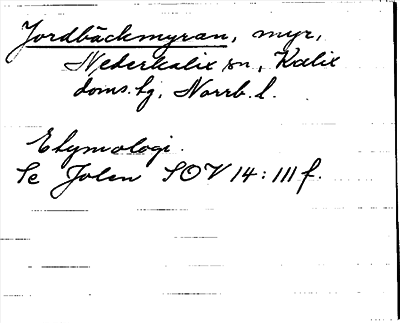 Jordbäckmyran, myr,
Nederkalix sn, Kalix
doms.hg, Norrb.l.
Etymologi.
Se Jolen SOV 14: 111 f.